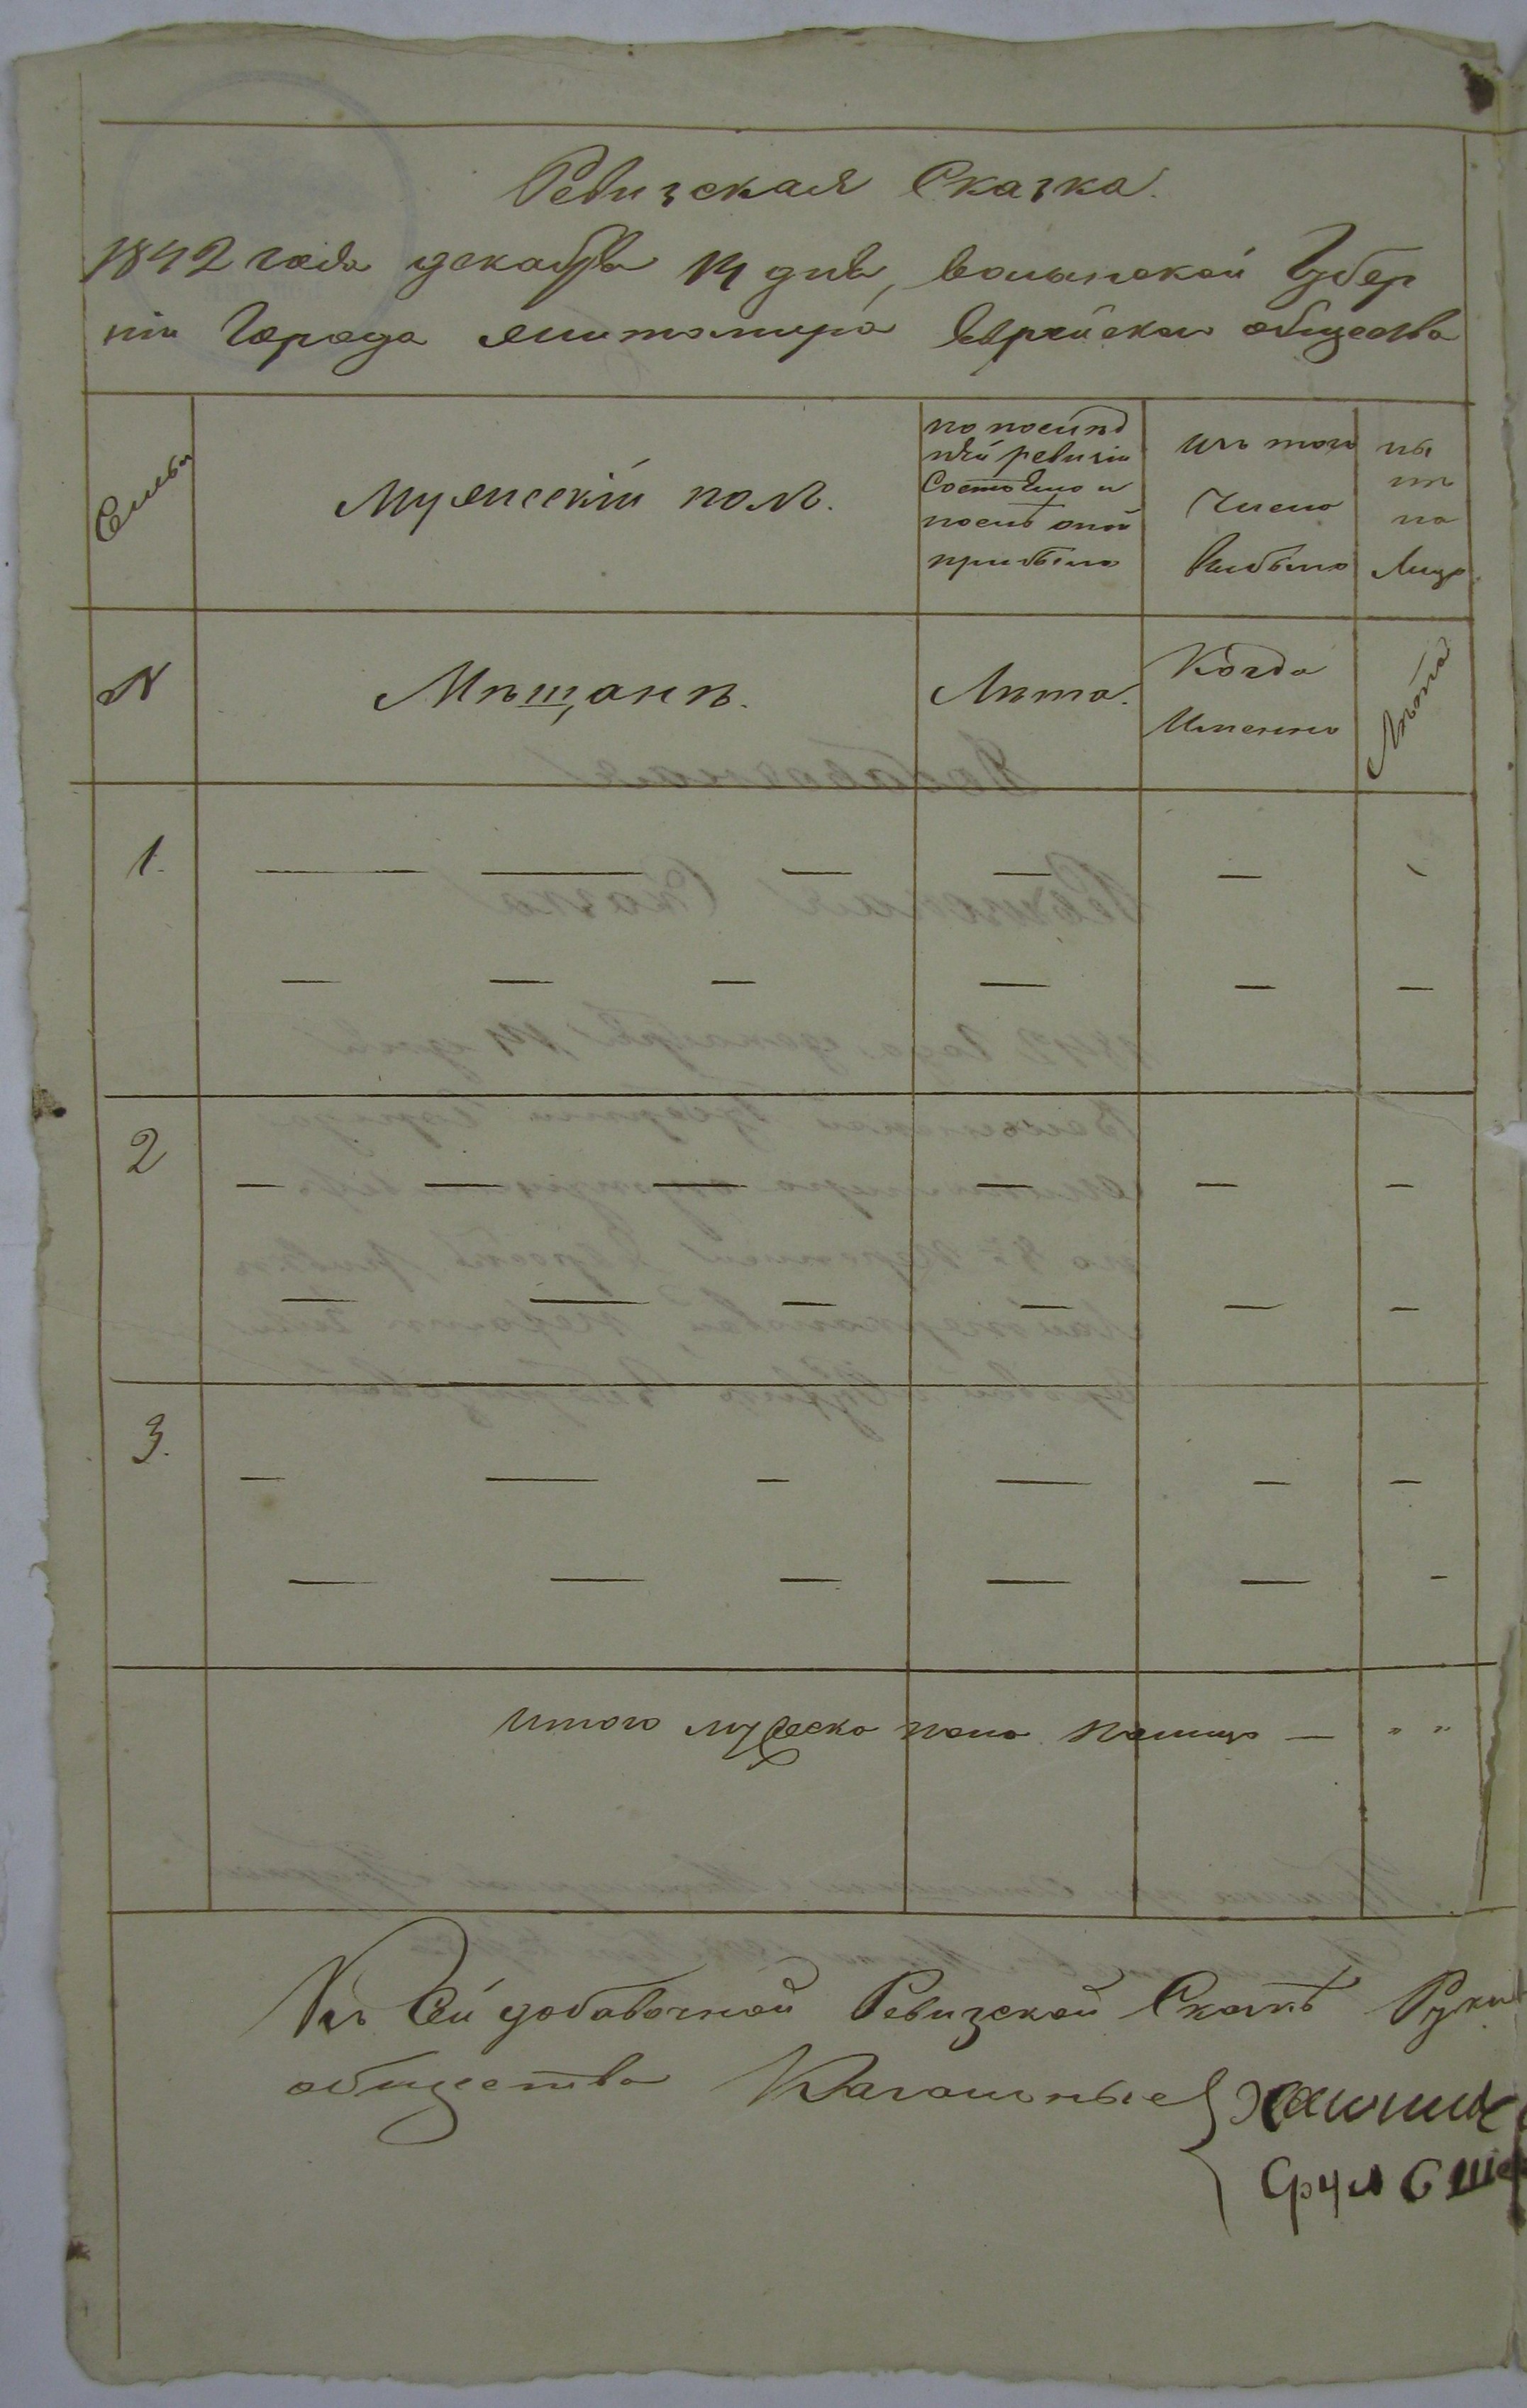 Ревизская Сказка.
1842 года декабря 14 дня, волынской Губер
ніи Города житомира Еврейскаго общества
Семьи
Мужескій полъ.
по послѣд
ней ревизіи
Состояло и
послѣ оной
прибыло
изъ того
Числа
выбыло
ны
нѣ
на
Лицо
№
Мѣщанѣ.
Лѣта.
Когда
Именно
Лѣта
1.
2
3.
Итого мужеска пола налицо — " "
Къ Сей добавочной Ревизской Сказкѣ Руки
общества Кагальные
Срул С